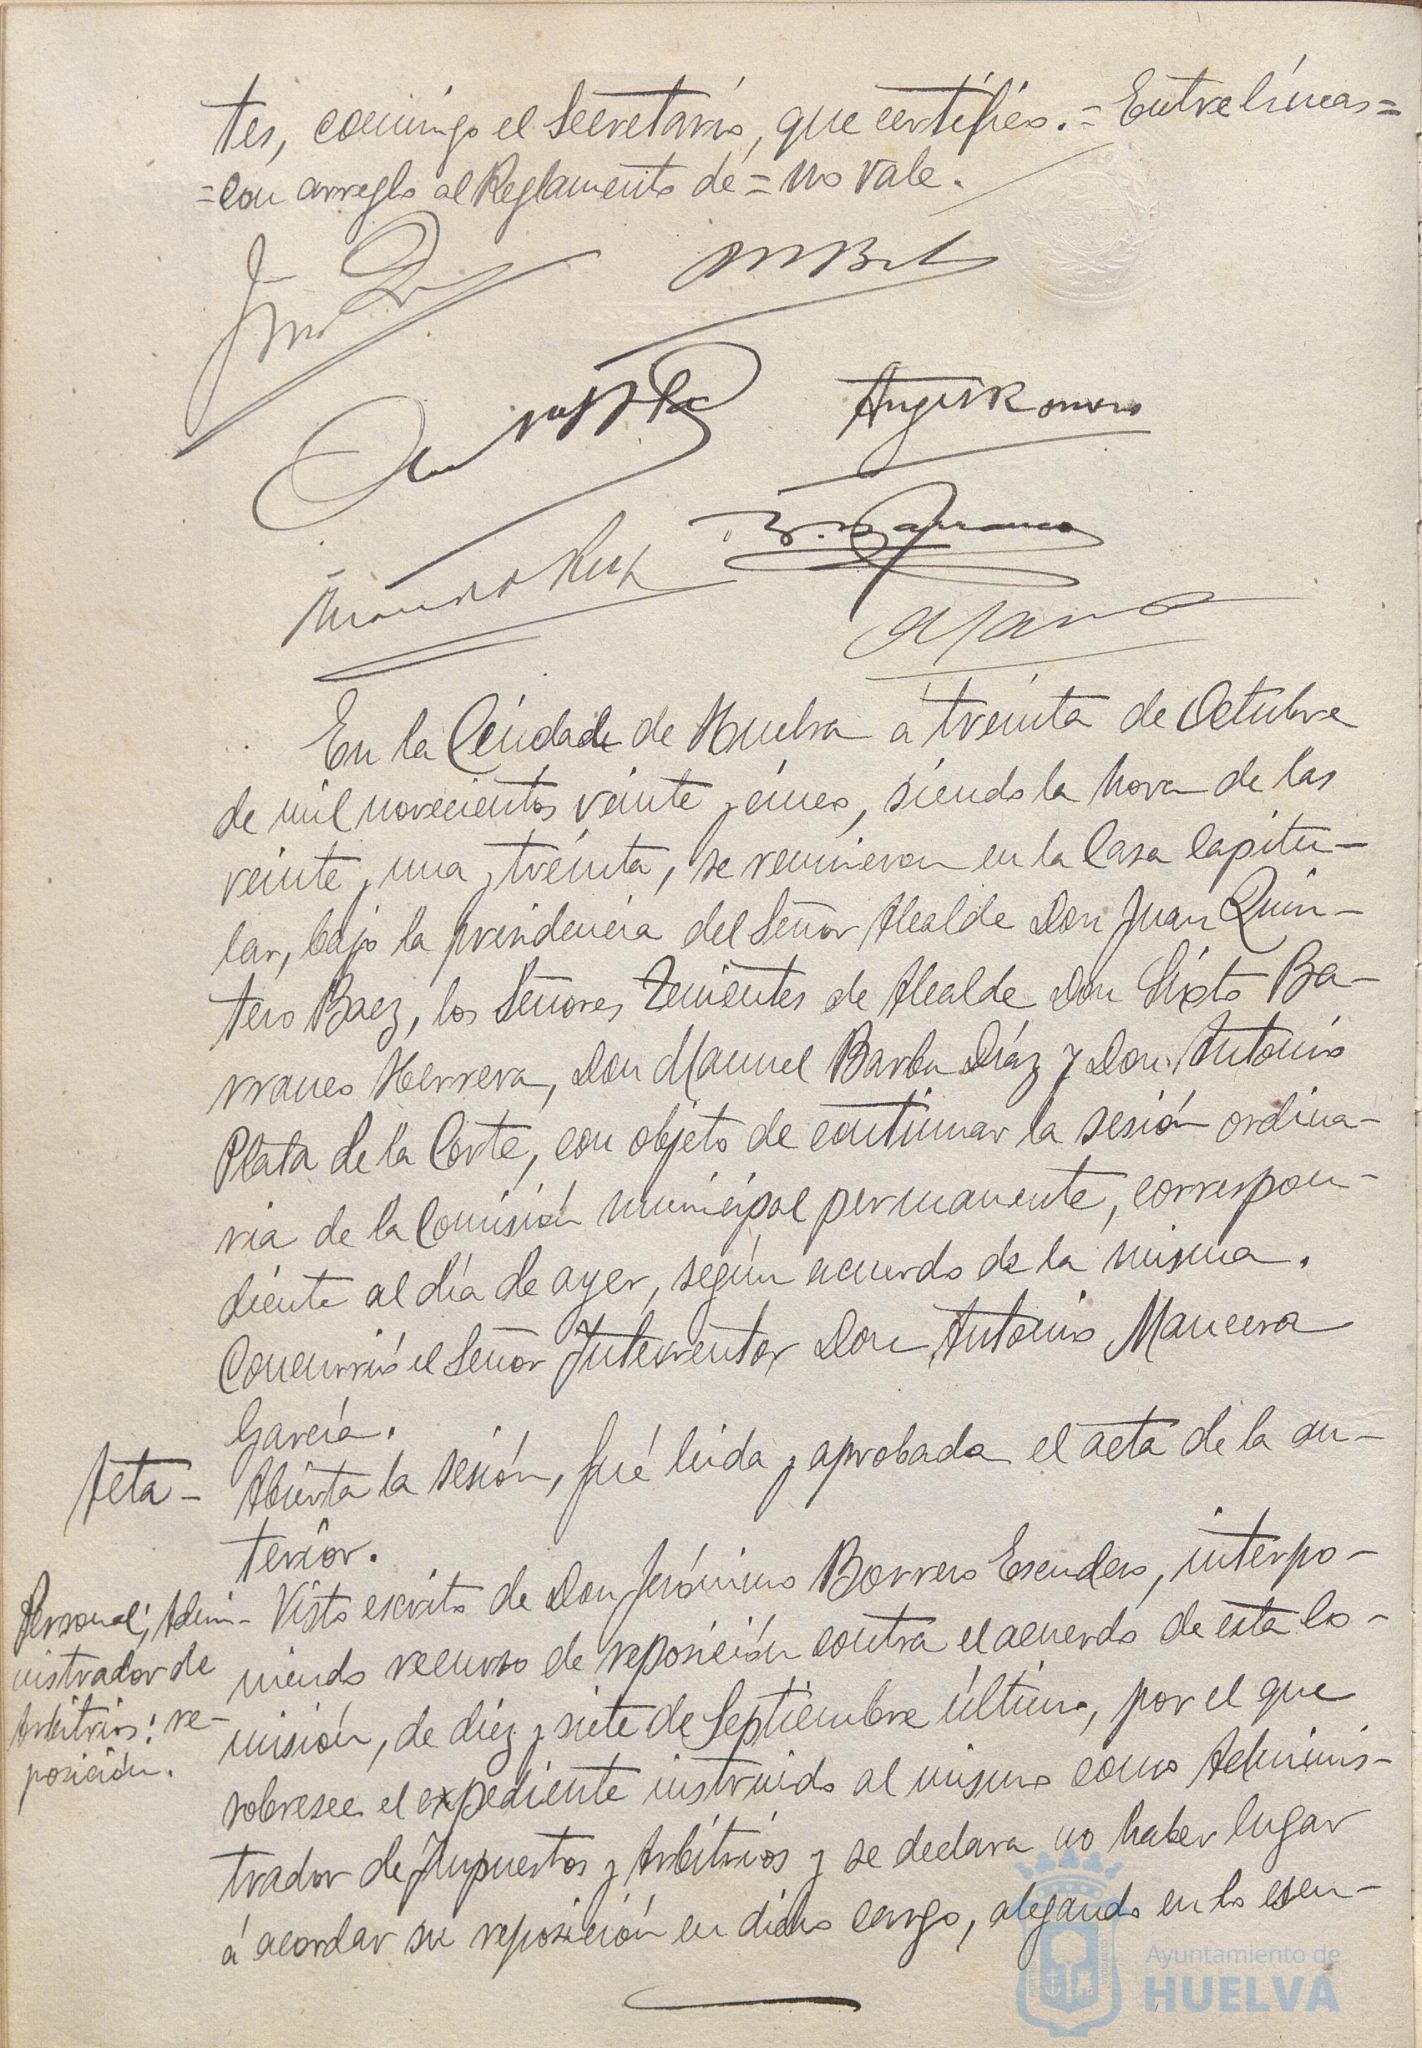 tes, conmigo el Secretario, que certifico. = Entre líneas =
= con arreglo al Reglamento de = no vale.
Angel Romero
En la Ciudad de Huelva á treinta de Octubre
de mil novecientos veinte y cinco, siendo la hora de las
veinte y una y treinta, se reunieron en la Casa Capitu-
lar, bajo la presidencia del Señor Alcalde Don Juan Quin-
tero Baez, los Señores Tenientes de Alcalde Don Sixto Ba-
rranco Herrera, Don Manuel Barba Díaz y Don Antonio
Plata de la Corte, con objeto de continuar la sesión ordina-
ria de la Comisión municipal permanente, correspon-
diente al día de ayer, según acuerdo de la misma.
Concurrió el Señor Interventor Don Antonio Mancera
García.
Acta -
Abierta la sesión, fué leida y aprobada el acta de la an-
terior.
Personal; Admi-
nistrador de
Arbitrios: re-
posición.
Visto escrito de Don Jerónimo Borrero Escudero, interpo-
niendo recurso de reposición contra el acuerdo de esta Co-
misión, de diez y siete de Septiembre último, por el que
sobresee el expediente instruido al mismo como Adminis-
trador de Impuestos y Arbitrios y se declara no haber lugar
á acordar su reposición en dicho cargo, alegando en lo esen-
Ayuntamiento de
HUELVA